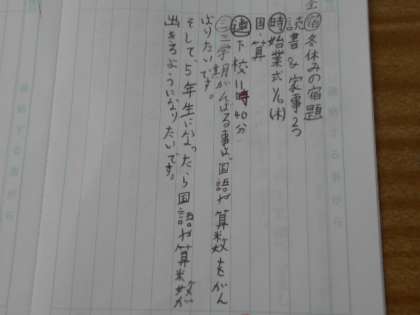 宿冬休みの宿題
読書&家事2つ
時始業式1/6(木)
国・算
連下校11時40分
三学期がんばる事は、国語や算数をがん
ばりたいです。
そして、5年生になったら国語や算数が
出きるようになりたいです。